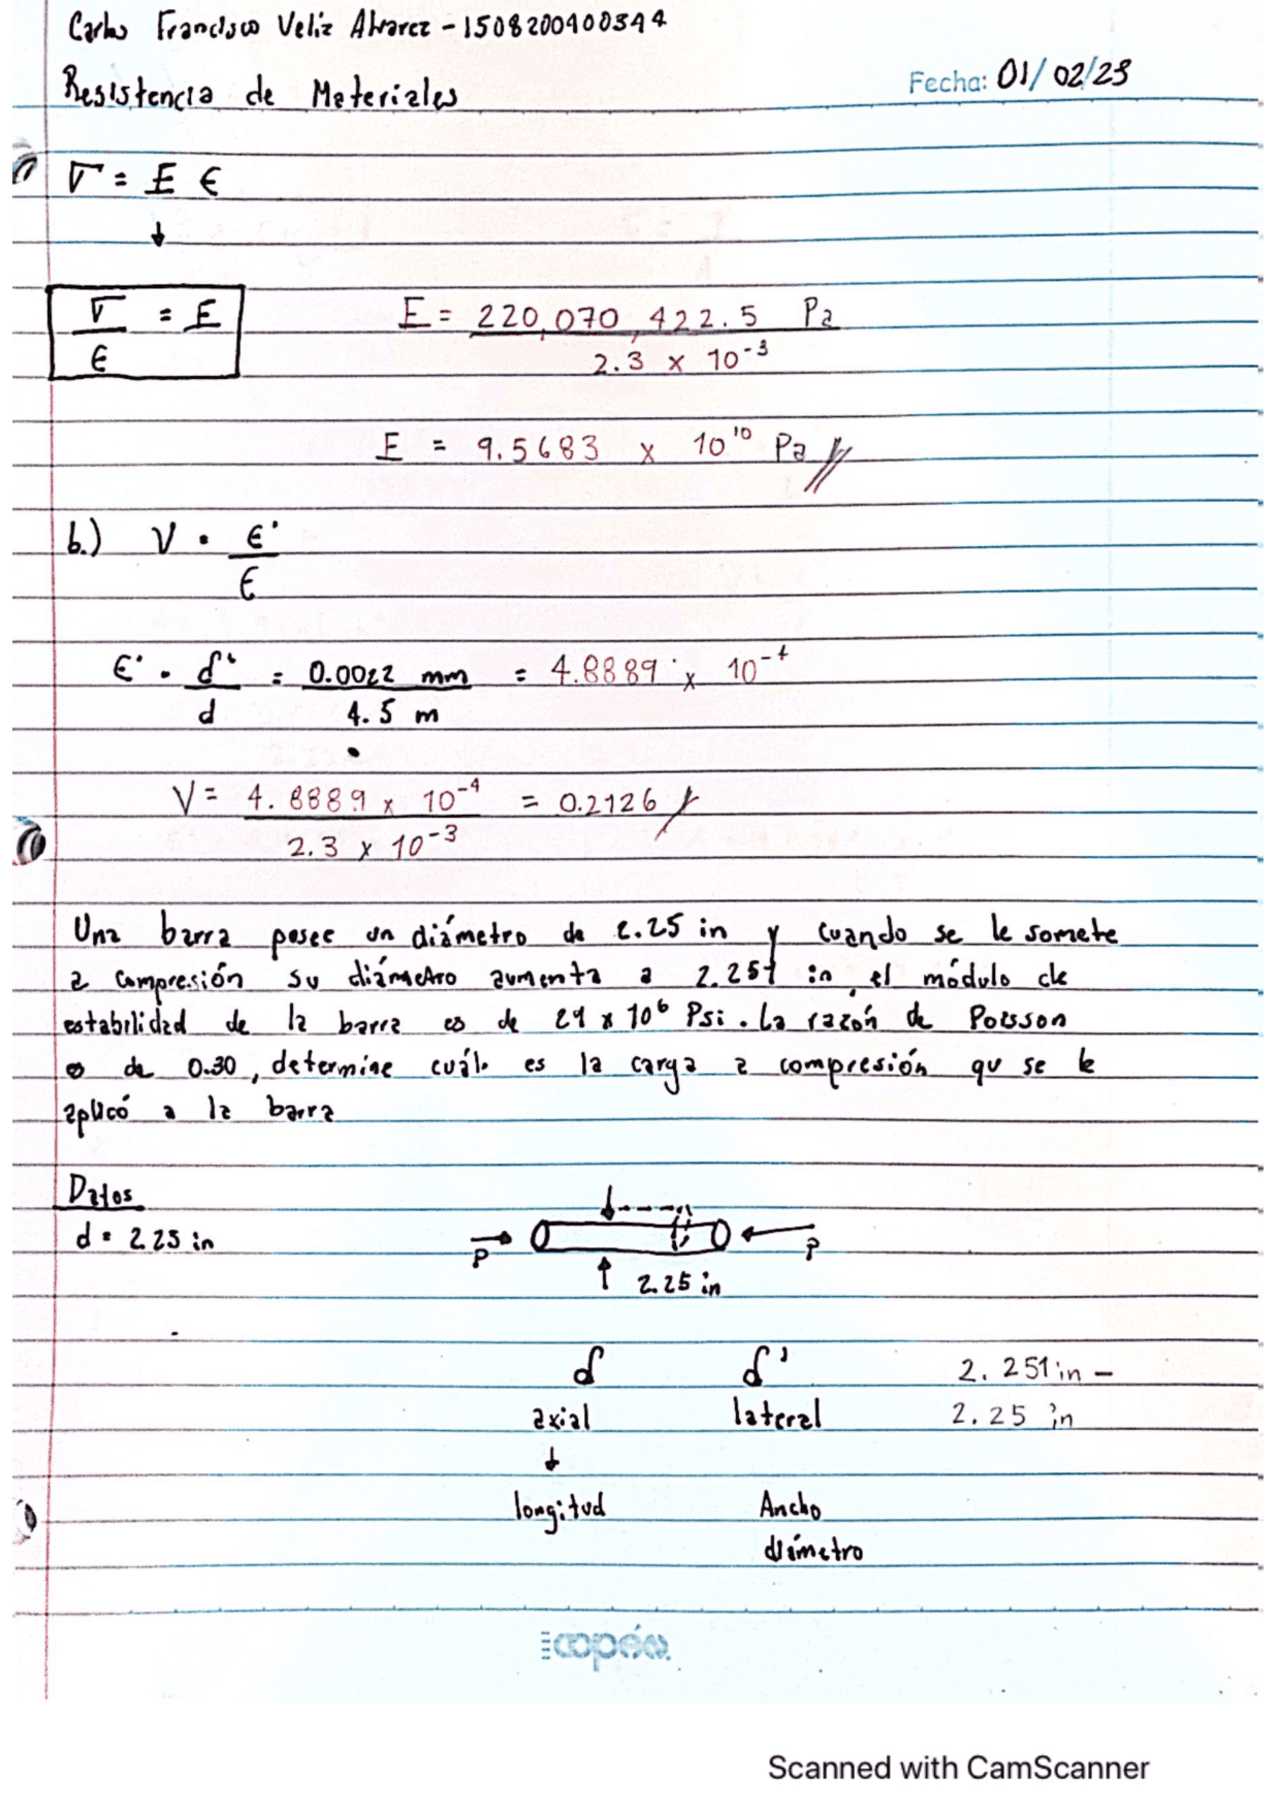 Carlos Francisco Veliz Alvarez - 1508200400344
Resistencia de Materiales
Fecha: 01/02/23
σ = E ε
↓
σ/ε = E
E = 220,070,422.5 Pa / 2.3 x 10⁻³
E = 9.5683 x 10¹⁰ Pa
b.) ν = ε'/ε
ε' = δ'/d = 0.0022 mm / 4.5 m = 4.8889 x 10⁻⁴
ν = 4.8889 x 10⁻⁴ / 2.3 x 10⁻³ = 0.2126
Una barra posee un diámetro de 2.25 in y cuando se le somete
a compresión su diámetro aumenta a 2.251 in, el módulo de
estabilidad de la barra es de 29 x 10⁶ Psi. La razón de Poisson
es de 0.30, determine cuál es la carga a compresión qu se le
aplicó a la barra
Datos
d = 2.25 in
P P
2.25 in
δ δ' 2.251 in -
axial lateral 2.25 in
↓
longitud Ancho
diámetro
copán
Scanned with CamScanner